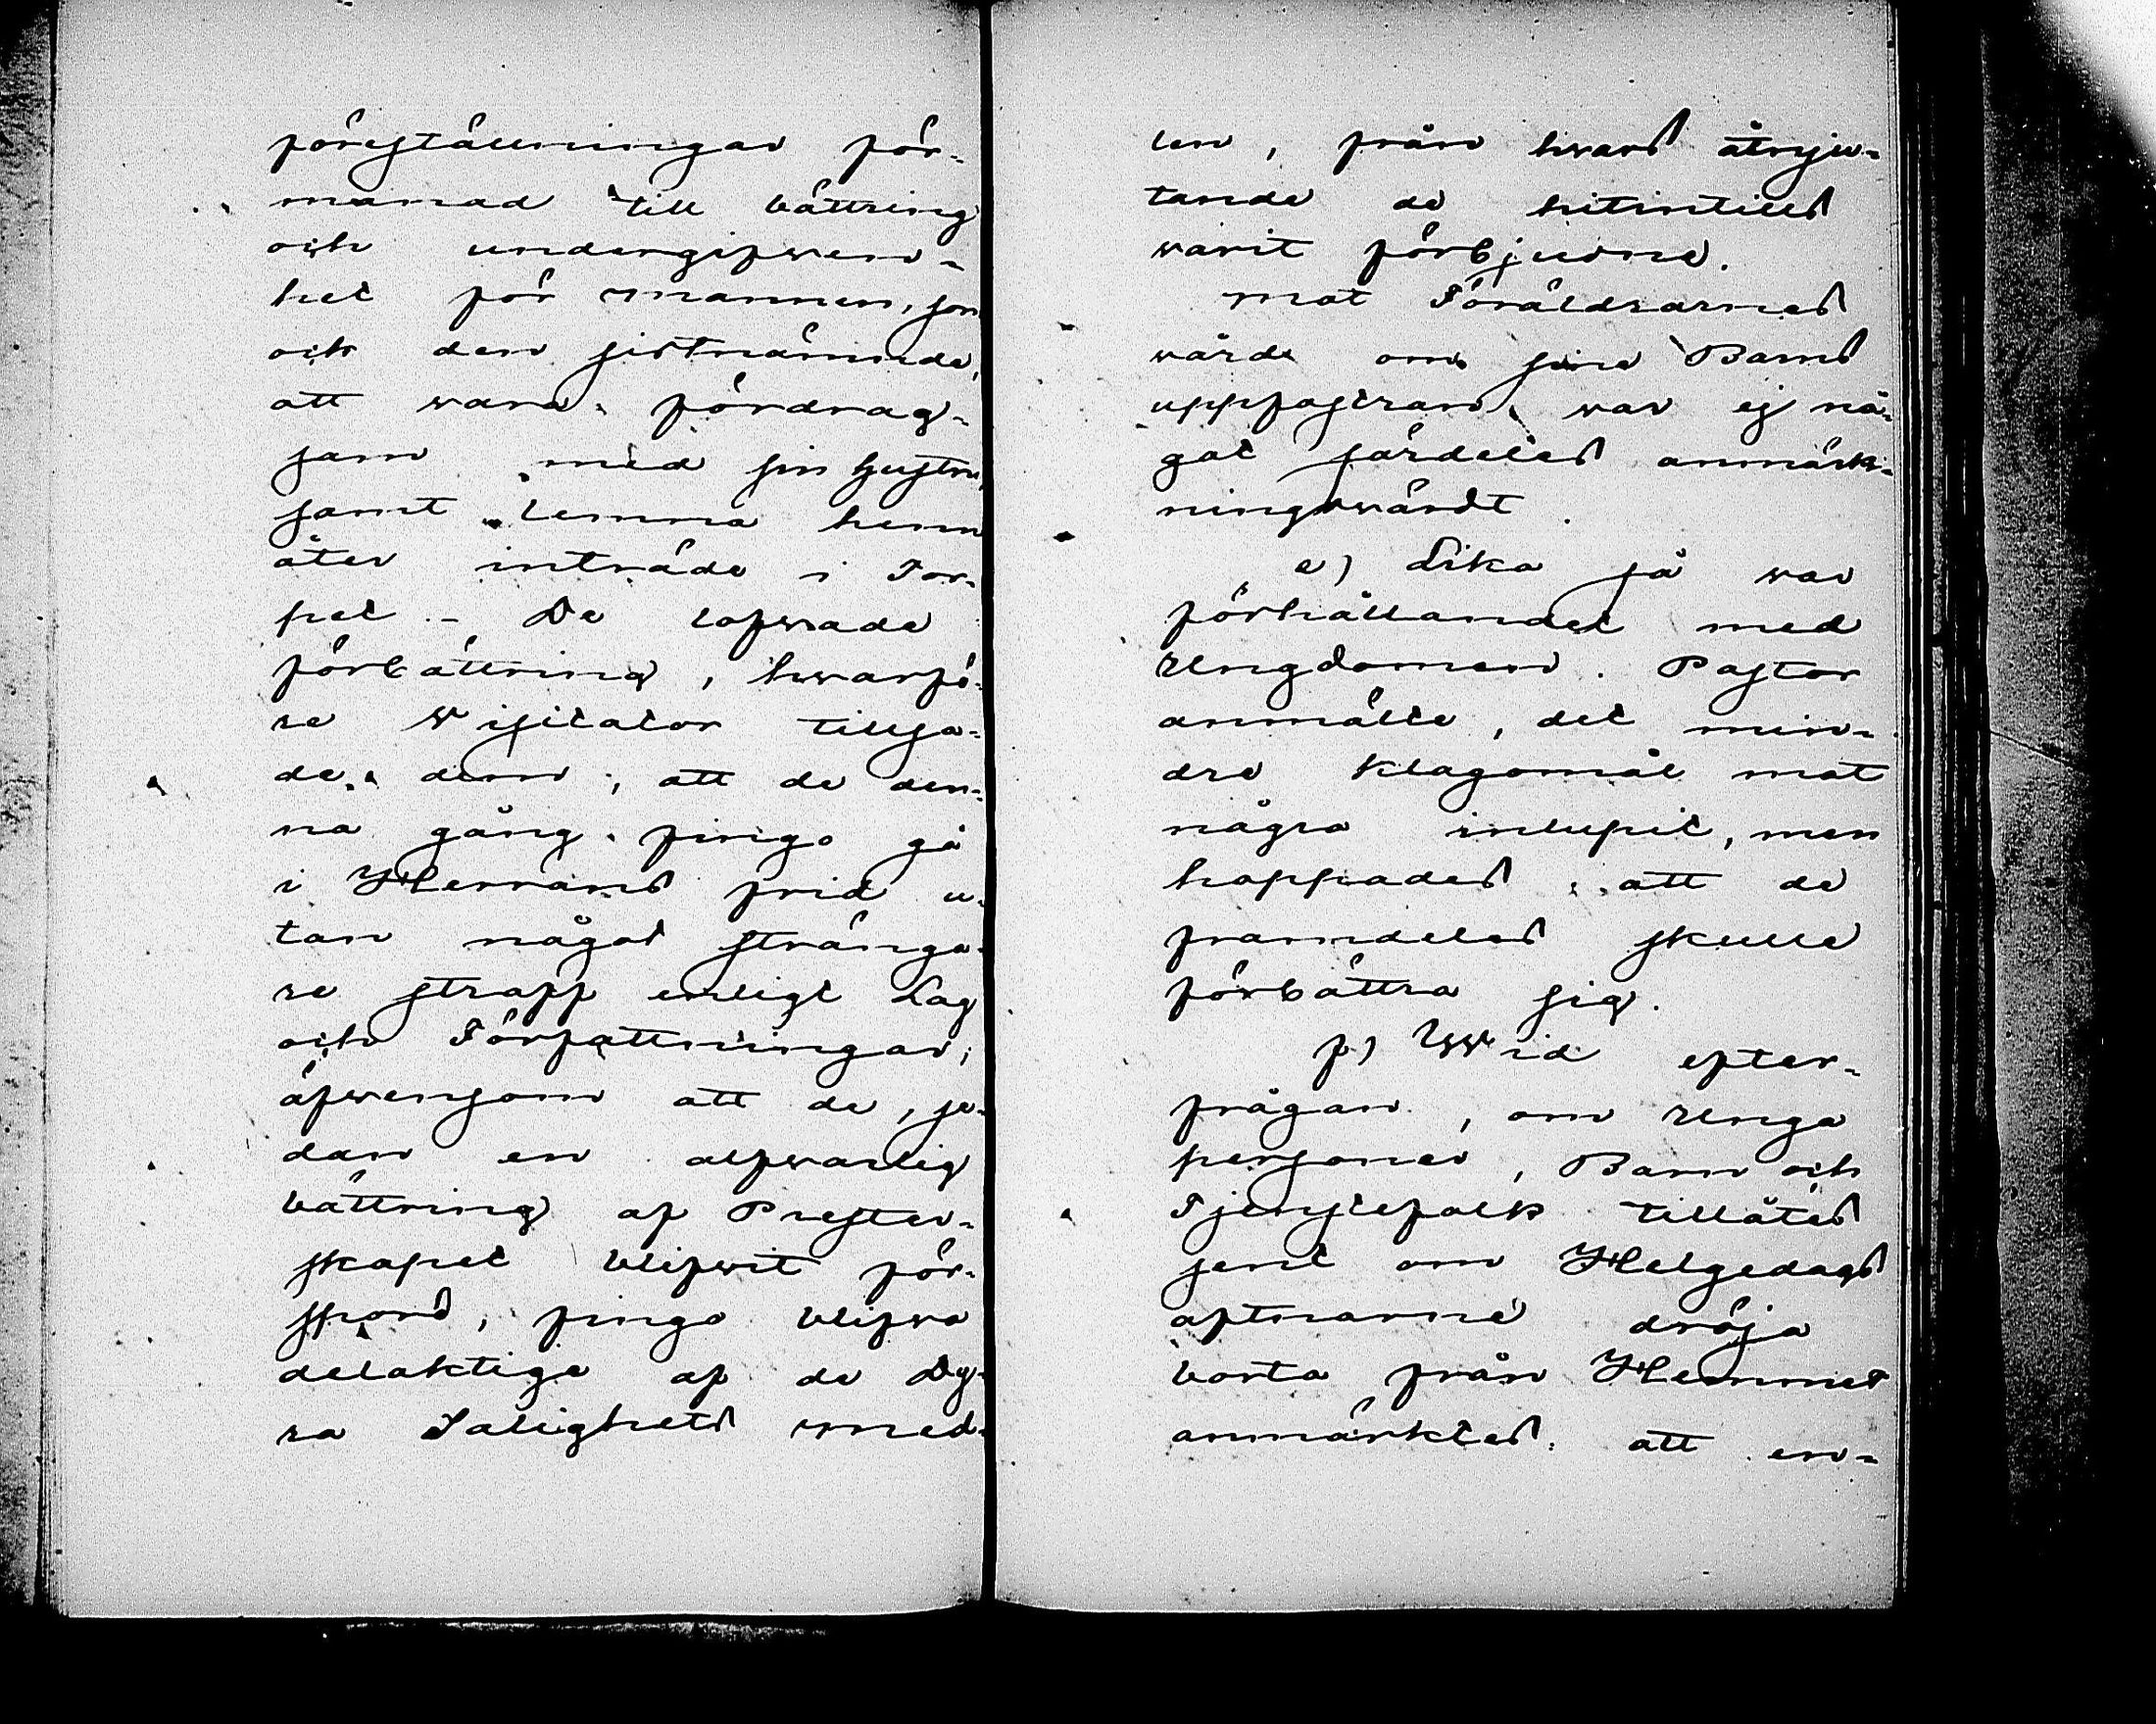 föreställningar för-
manad till bättring
och undergifwen-
het för mannen, som
och den sistnämnde,
att wara fördrag-
sam med sin hustru,
samt lemna henne
åter inträde i Tor-
pet. - De lofwade
förbättring, hwarfö-
re Visitator tillsa-
de dem, att de den-
na gång fingo gå
i Herrans frid u-
tan något stränga-
re straff enligt Lag
och Författningar;
äfwensom att de, se-
dan en alfwarlig
bättring af Prester-
skapet blifwit för-
spord, fingo blifwa
delaktige af de Dy-
ra Salighets med-
len, från hvars åtnju-
tande de hitintills
varit förbjudne.
mot Föräldrarnes
wård om sine Barns
uppfostran war ej nå-
got särdeles anmärk-
ningswärdt.
e) Lika så war
förhållandet med
Ungdomen. Pastor
anmälte, det min-
dre klagomål mot
några inlupit, men
hoppades att de
framdeles skulle
förbättra sig.
f) Wid efter-
frågan, om unga
personer, Barn och
Tjenstefolk tillåtes
sent om Helgedags
aftnarne dröja
borta från Hemmet
anmärktes, att en-